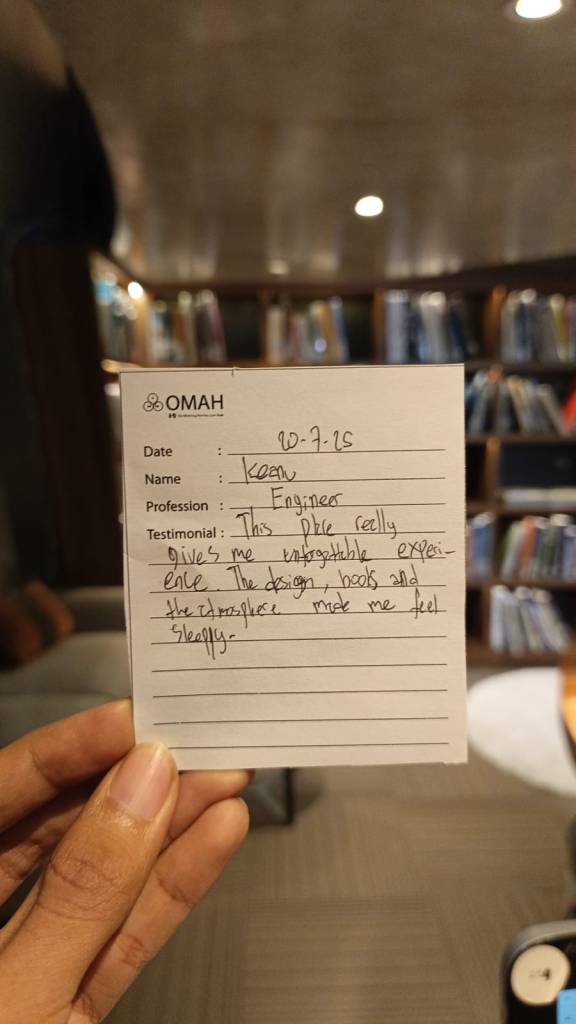 OMAH
Date : 20-7-25
Name : Keanu
Profession : Engineer
Testimonial : This place really
gives me unforgettable experi-
ence The design, books and
the atmosphere made me feel
sleepy.